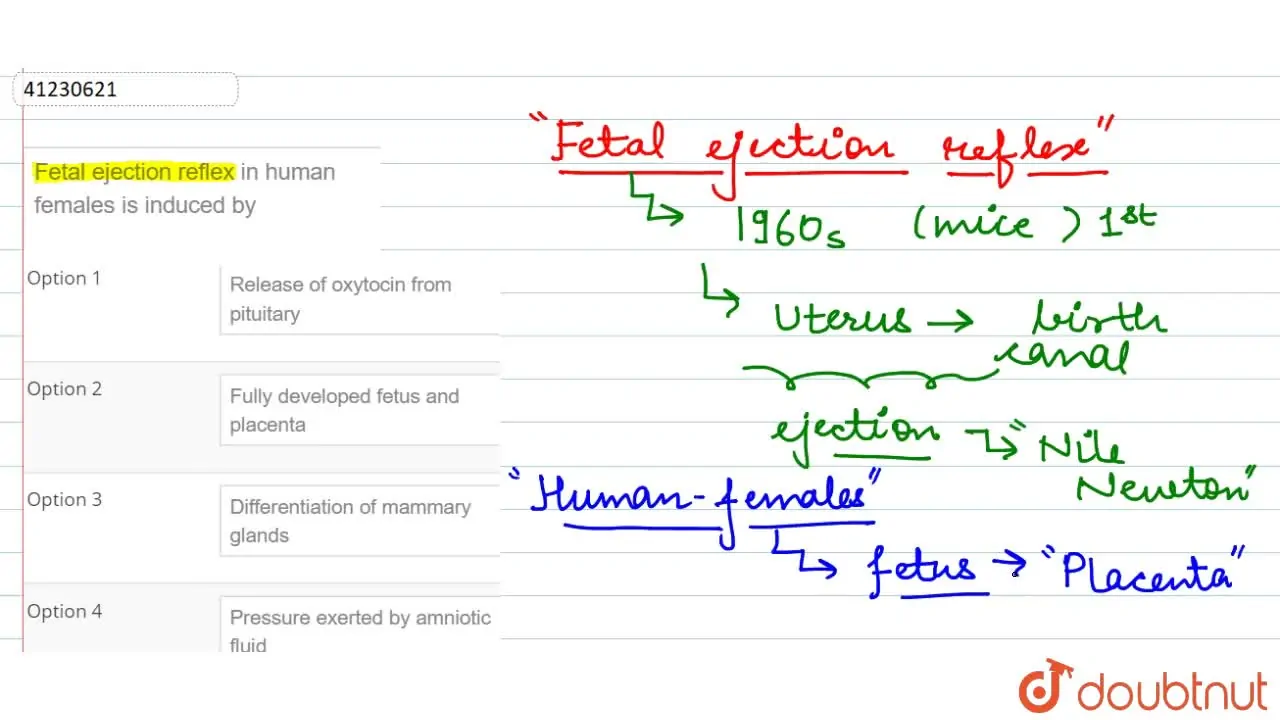 41230621
Fetal ejection reflex in human
females is induced by
Option 1
Release of oxytocin from
pituitary
Option 2
Fully developed fetus and
placenta
Option 3
Differentiation of mammary
glands
Option 4
Pressure exerted by amniotic
fluid
"Fetal ejection reflex"
1960s (mice) 1st
Uterus → birth
canal
ejection "Nile
Newton"
"Human-females"
fetus → "Placenta"
doubtnut